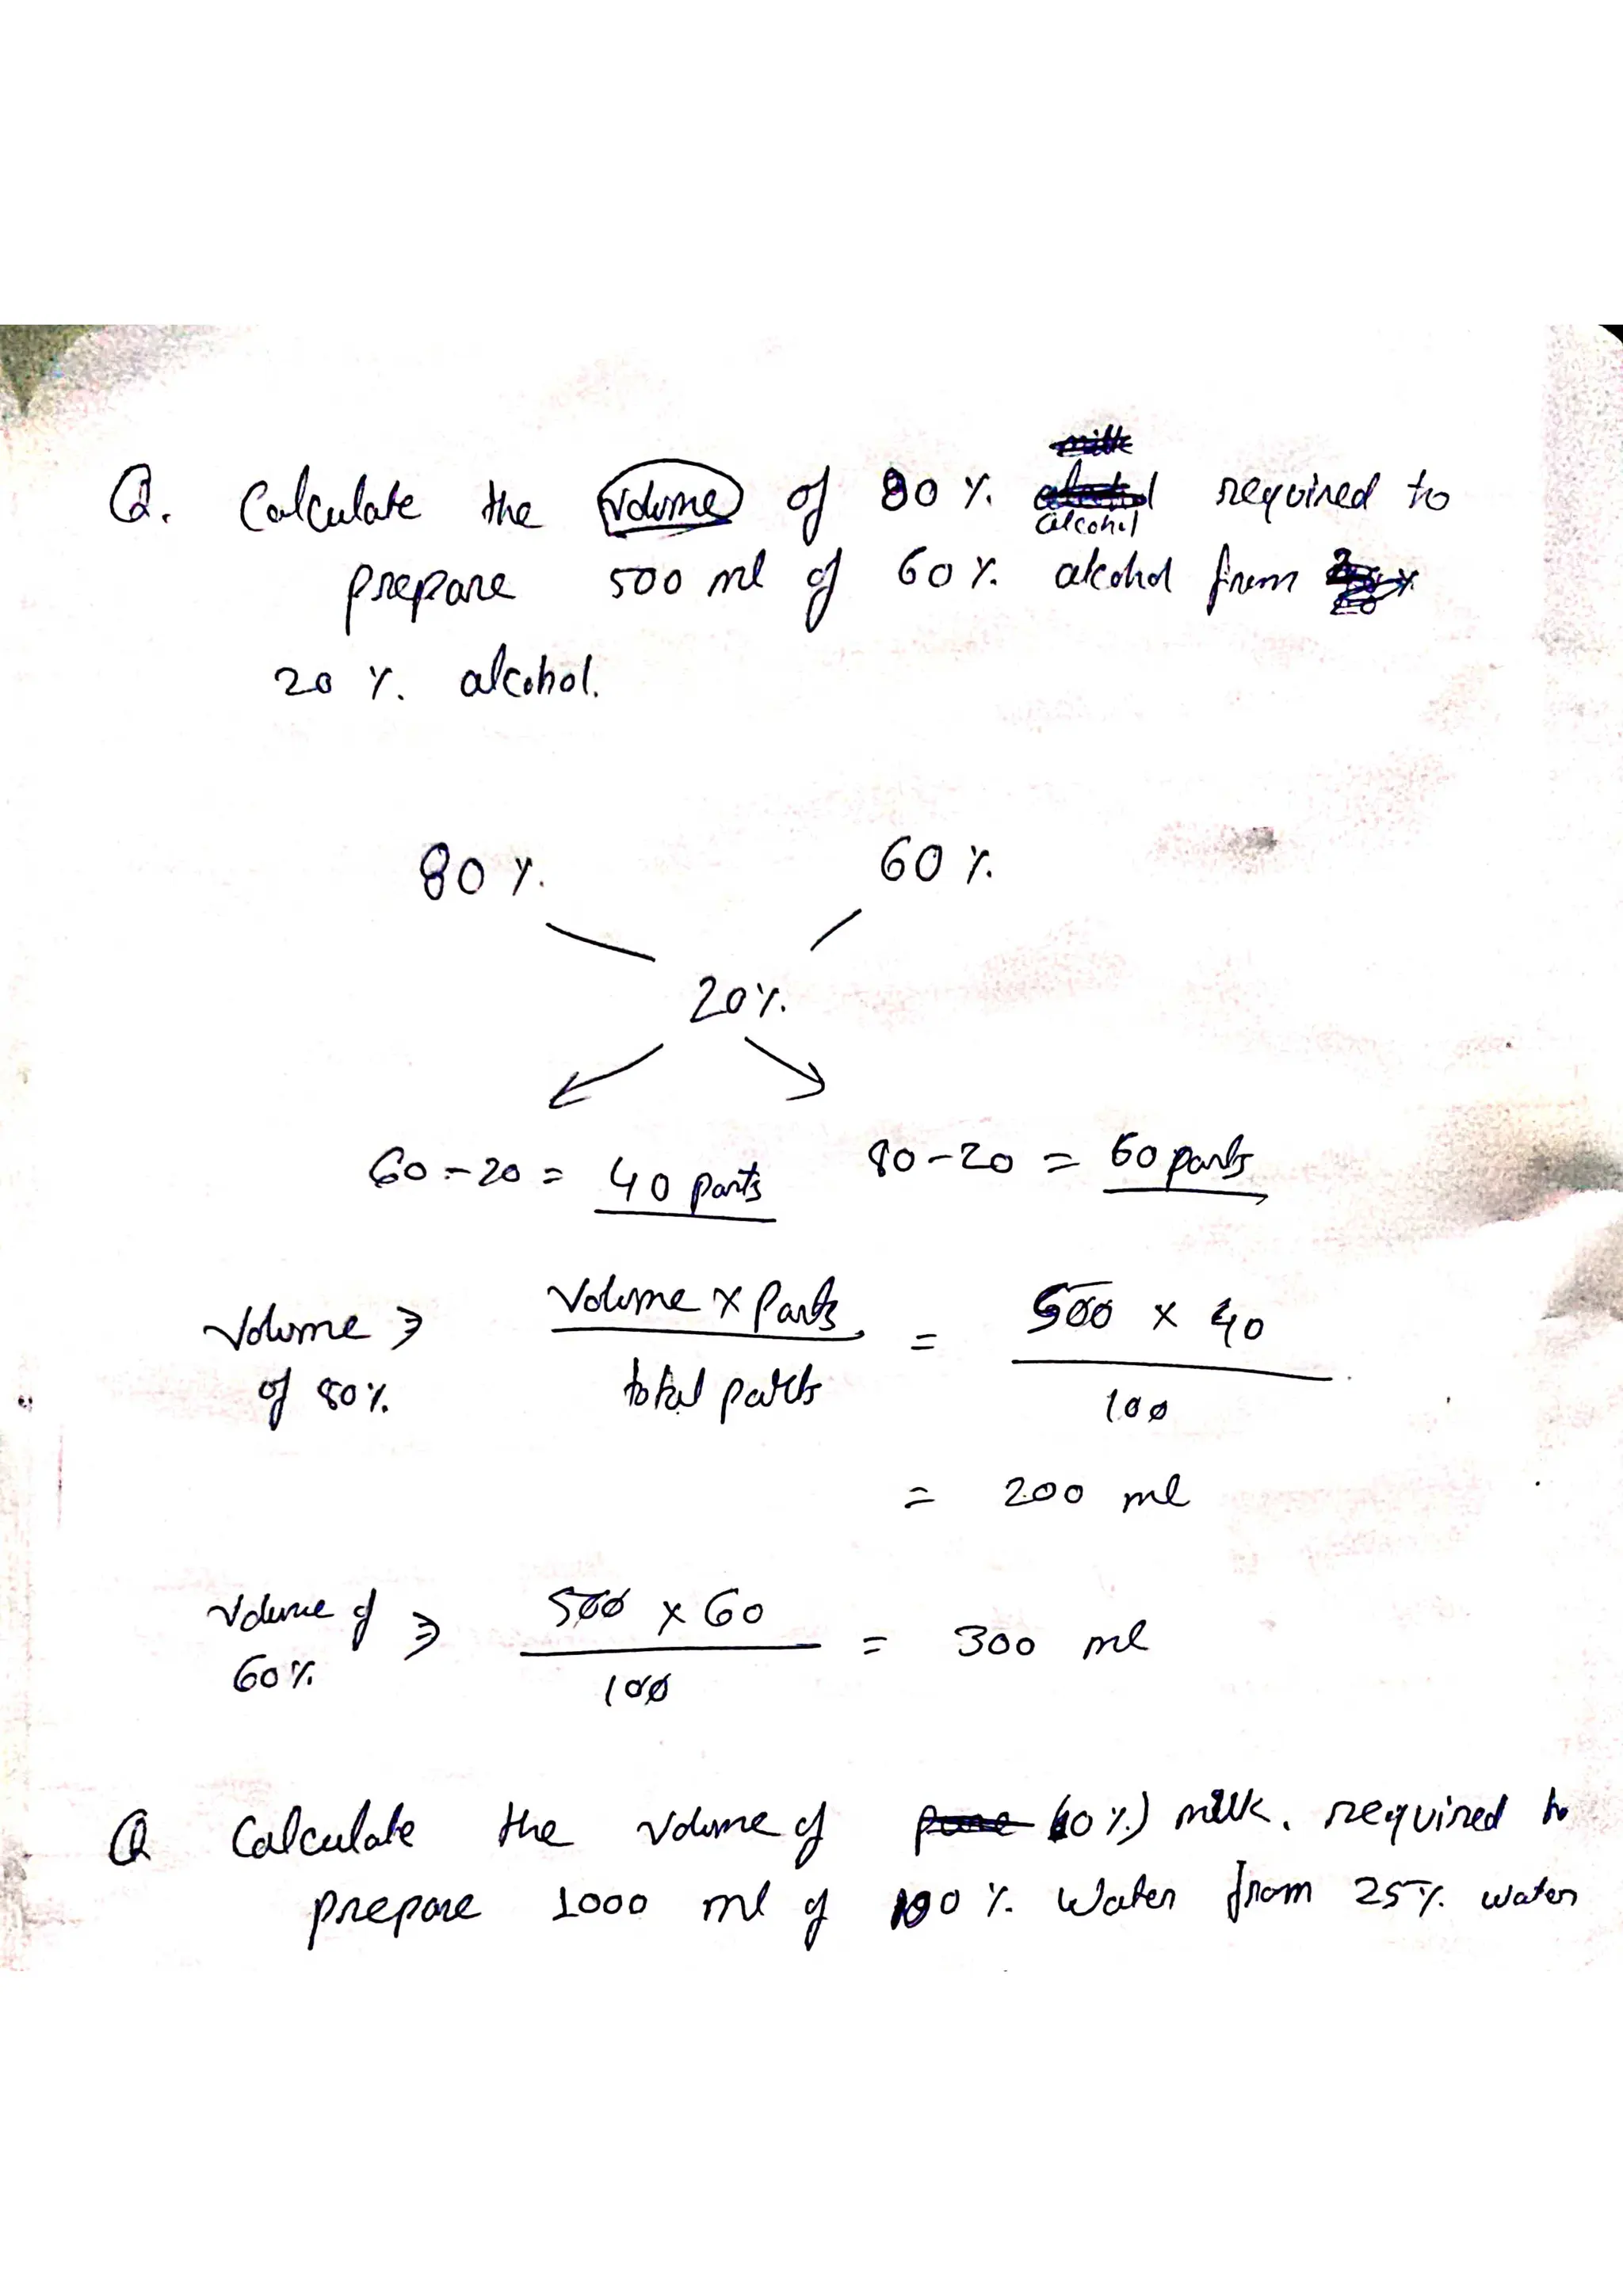 Q. Calculate the volume of 80 %. alcohol required to
prepare 500 ml of 60 %. alcohol from
20 %. alcohol.
80 %. 60 %.
20 %.
60 - 20 = 40 parts 80 - 20 = 60 parts
Volume of 80 %. ⇒ Volume x Parts / total parts = 500 x 40 / 100
= 200 ml
Volume of 60 %. ⇒ 500 x 60 / 100 = 300 ml
Q Calculate the volume of 60 %.) milk. required to
prepare 1000 ml of 100 %. Water from 25 %. water